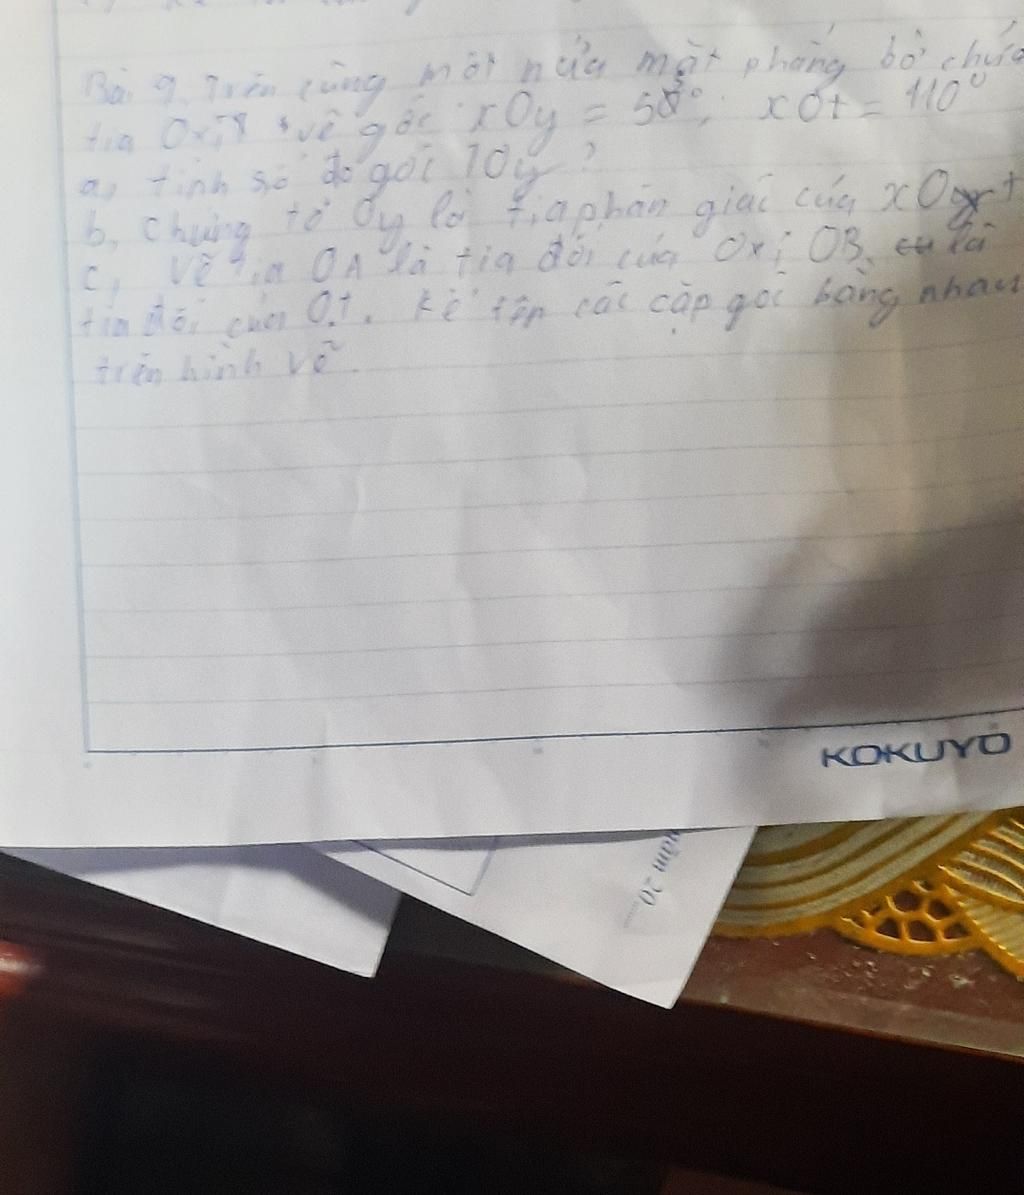 Bài 9. Trên cùng một nửa mặt phẳng bờ chứa
tia Ox, vẽ góc xOy = 58°; xOt = 110°
a, tính số đo góc TOy?
b, chứng tỏ Oy là tia phân giác của xOt
c, vẽ tia OA là tia đối của Ox; OB là
tia đối của Ot. Kể tên các cặp góc bằng nhau
trên hình vẽ.
KOKUYO
năm 20